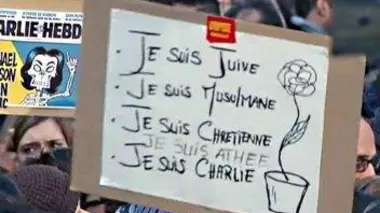 CHARLIE HEBD
· JE SUIS JUIVE
· JE SUIS MUSULMANE
· JE SUIS CHRETIENNE
JE SUIS ATHEE
· JE SUIS CHARLIE